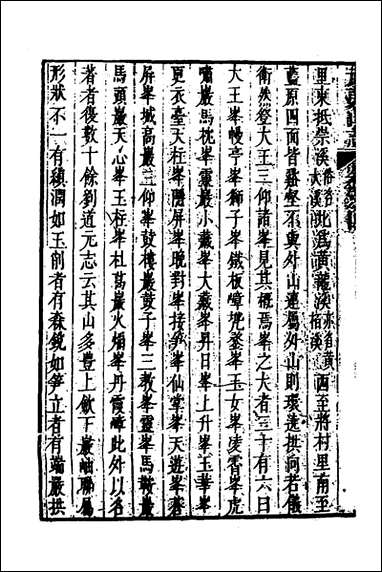 里東抵崇溪希名大溪北爲黃龍溪亦名黃柏溪西至將村里南至
藍原四面皆谿壑不與外山連屬外山則環遶拱向若儀
衛然登大王三仰諸峯見其槪焉峯之大者三十有六曰
大王峯幔亭峯獅子峯鐵板嶂兜鍪峯玉女峯凌霄峯虎
嘯巖馬枕峯靈巖小藏峯大藏峯昇日峯上升峯玉華峯
更衣臺天柱峯隱屏峯晚對峯接笋峯仙掌峯天遊峯蒼
屏峯城高巖三仰峯鼓樓巖鼓子峯三教峯靈峯馬鞍巖
馬頭巖天心峯玉柱峯杜葛巖火焰峯丹霞嶂此外以名
著者復數十餘劉道元志云其山多豐上歛下巖岫聯屬
形狀不一有縝潤如玉削者有森銳如笋立者有端嚴拱